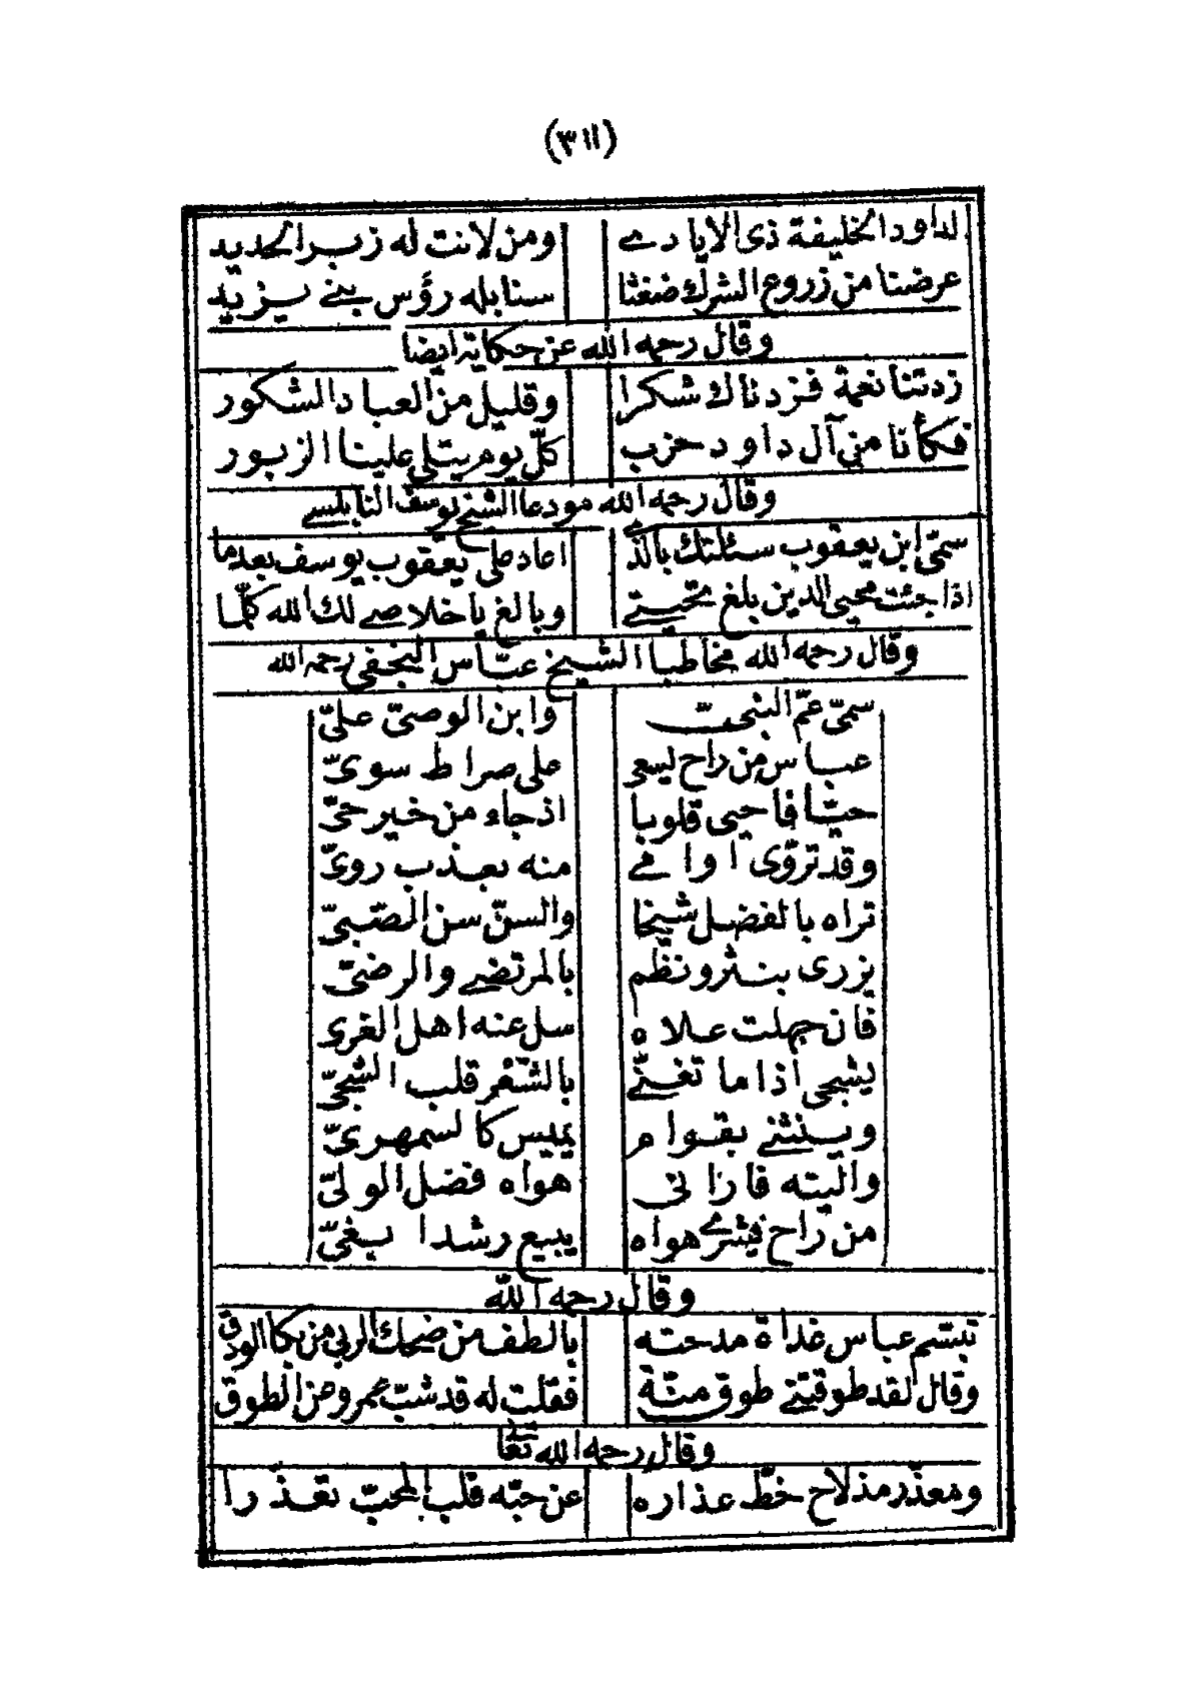 (٣١١)
لداود الخليفة ذى الايادے ومن لانت له زبر الحديد
عرضنا من زروع الشرك ضغثا سنابله رؤس بنے يزيد
وقال رحمه الله عن حكاية ايضا
زدتنا نعمة فزدناك شكرا وقليل من العباد الشكور
فكأنا من آل داود حزب كلّ يوم يتلى علينا الزبور
وقال رحمه الله مودعا الشيخ يوسف النابلسے
سمىّ ابن يعقوب سئلتك بالذے اعاد على يعقوب يوسف بعدما
اذا جئت محيى الدين بلغ تحيتے وبالغ ياخلاصے لك الله كلّما
وقال رحمه الله مخاطبا الشيخ عبّاس النجفى رحمه الله
سمىّ عمّ النبىّ وابن الوصىّ علىّ
عباس من راح يسعى على صراط سوىّ
حيّا فاحيى قلوبا اذ جاء من خير حىّ
وقد تروّى اوامے منه بعذب روىّ
تراه بالفضل شيخا والسنّ سن الصبىّ
يزرى بنثر ونظم بالمرتضے والرضىّ
فان جهلت علاه سل عنه اهل الغرى
يشجى اذا ما تغنّے بالشعر قلب الشجىّ
وينثنے بقوام يميس كالسمهرىّ
واليته فازانى هواه فضل الولىّ
من راح يشرے هواه يبيع رشدا بغىّ
وقال رحمه الله
تبسّم عباس غداة مدحته بالطف من ضحك الربى من بكا الودق
وقال لقد طوقتنے طوق منّة فقلت له قد شبّ عمرو عن الطوق
وقال رحمه الله تعا
ومعذّر مذ لاح خطّ عذاره عن حبّه قلب المحبّ تعذّرا